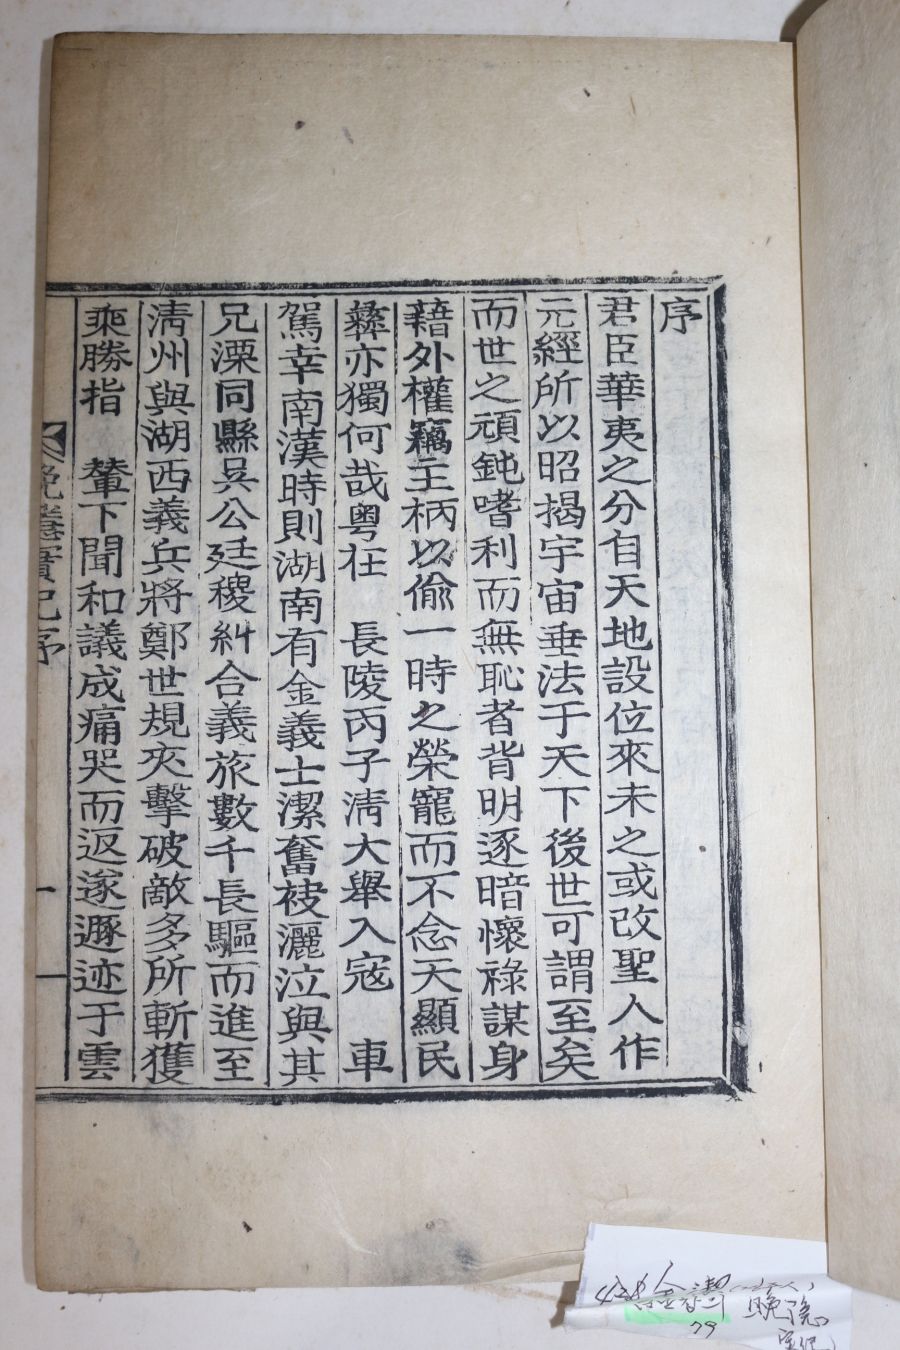 序
君臣華夷之分自天地設位來未之或改聖人作
元經所以昭揭宇宙垂法于天下後世可謂至矣
而世之頑鈍嗜利而無恥者背明逐暗懷祿謀身
藉外權竊主柄以偸一時之榮寵而不念天顯民
彝亦獨何哉粤在 長陵丙子淸大舉入寇 車
駕幸南漢時則湖南有金義士潔奮袂灑泣與其
兄溧同縣吳公廷稷糾合義旅數千長驅而進至
淸州與湖西義兵將鄭世規夾擊破敵多所斬獲
乘勝指 輦下聞和議成痛哭而返遂遯迹于雲
晩隱實記序 一
金潔
晩隱
79